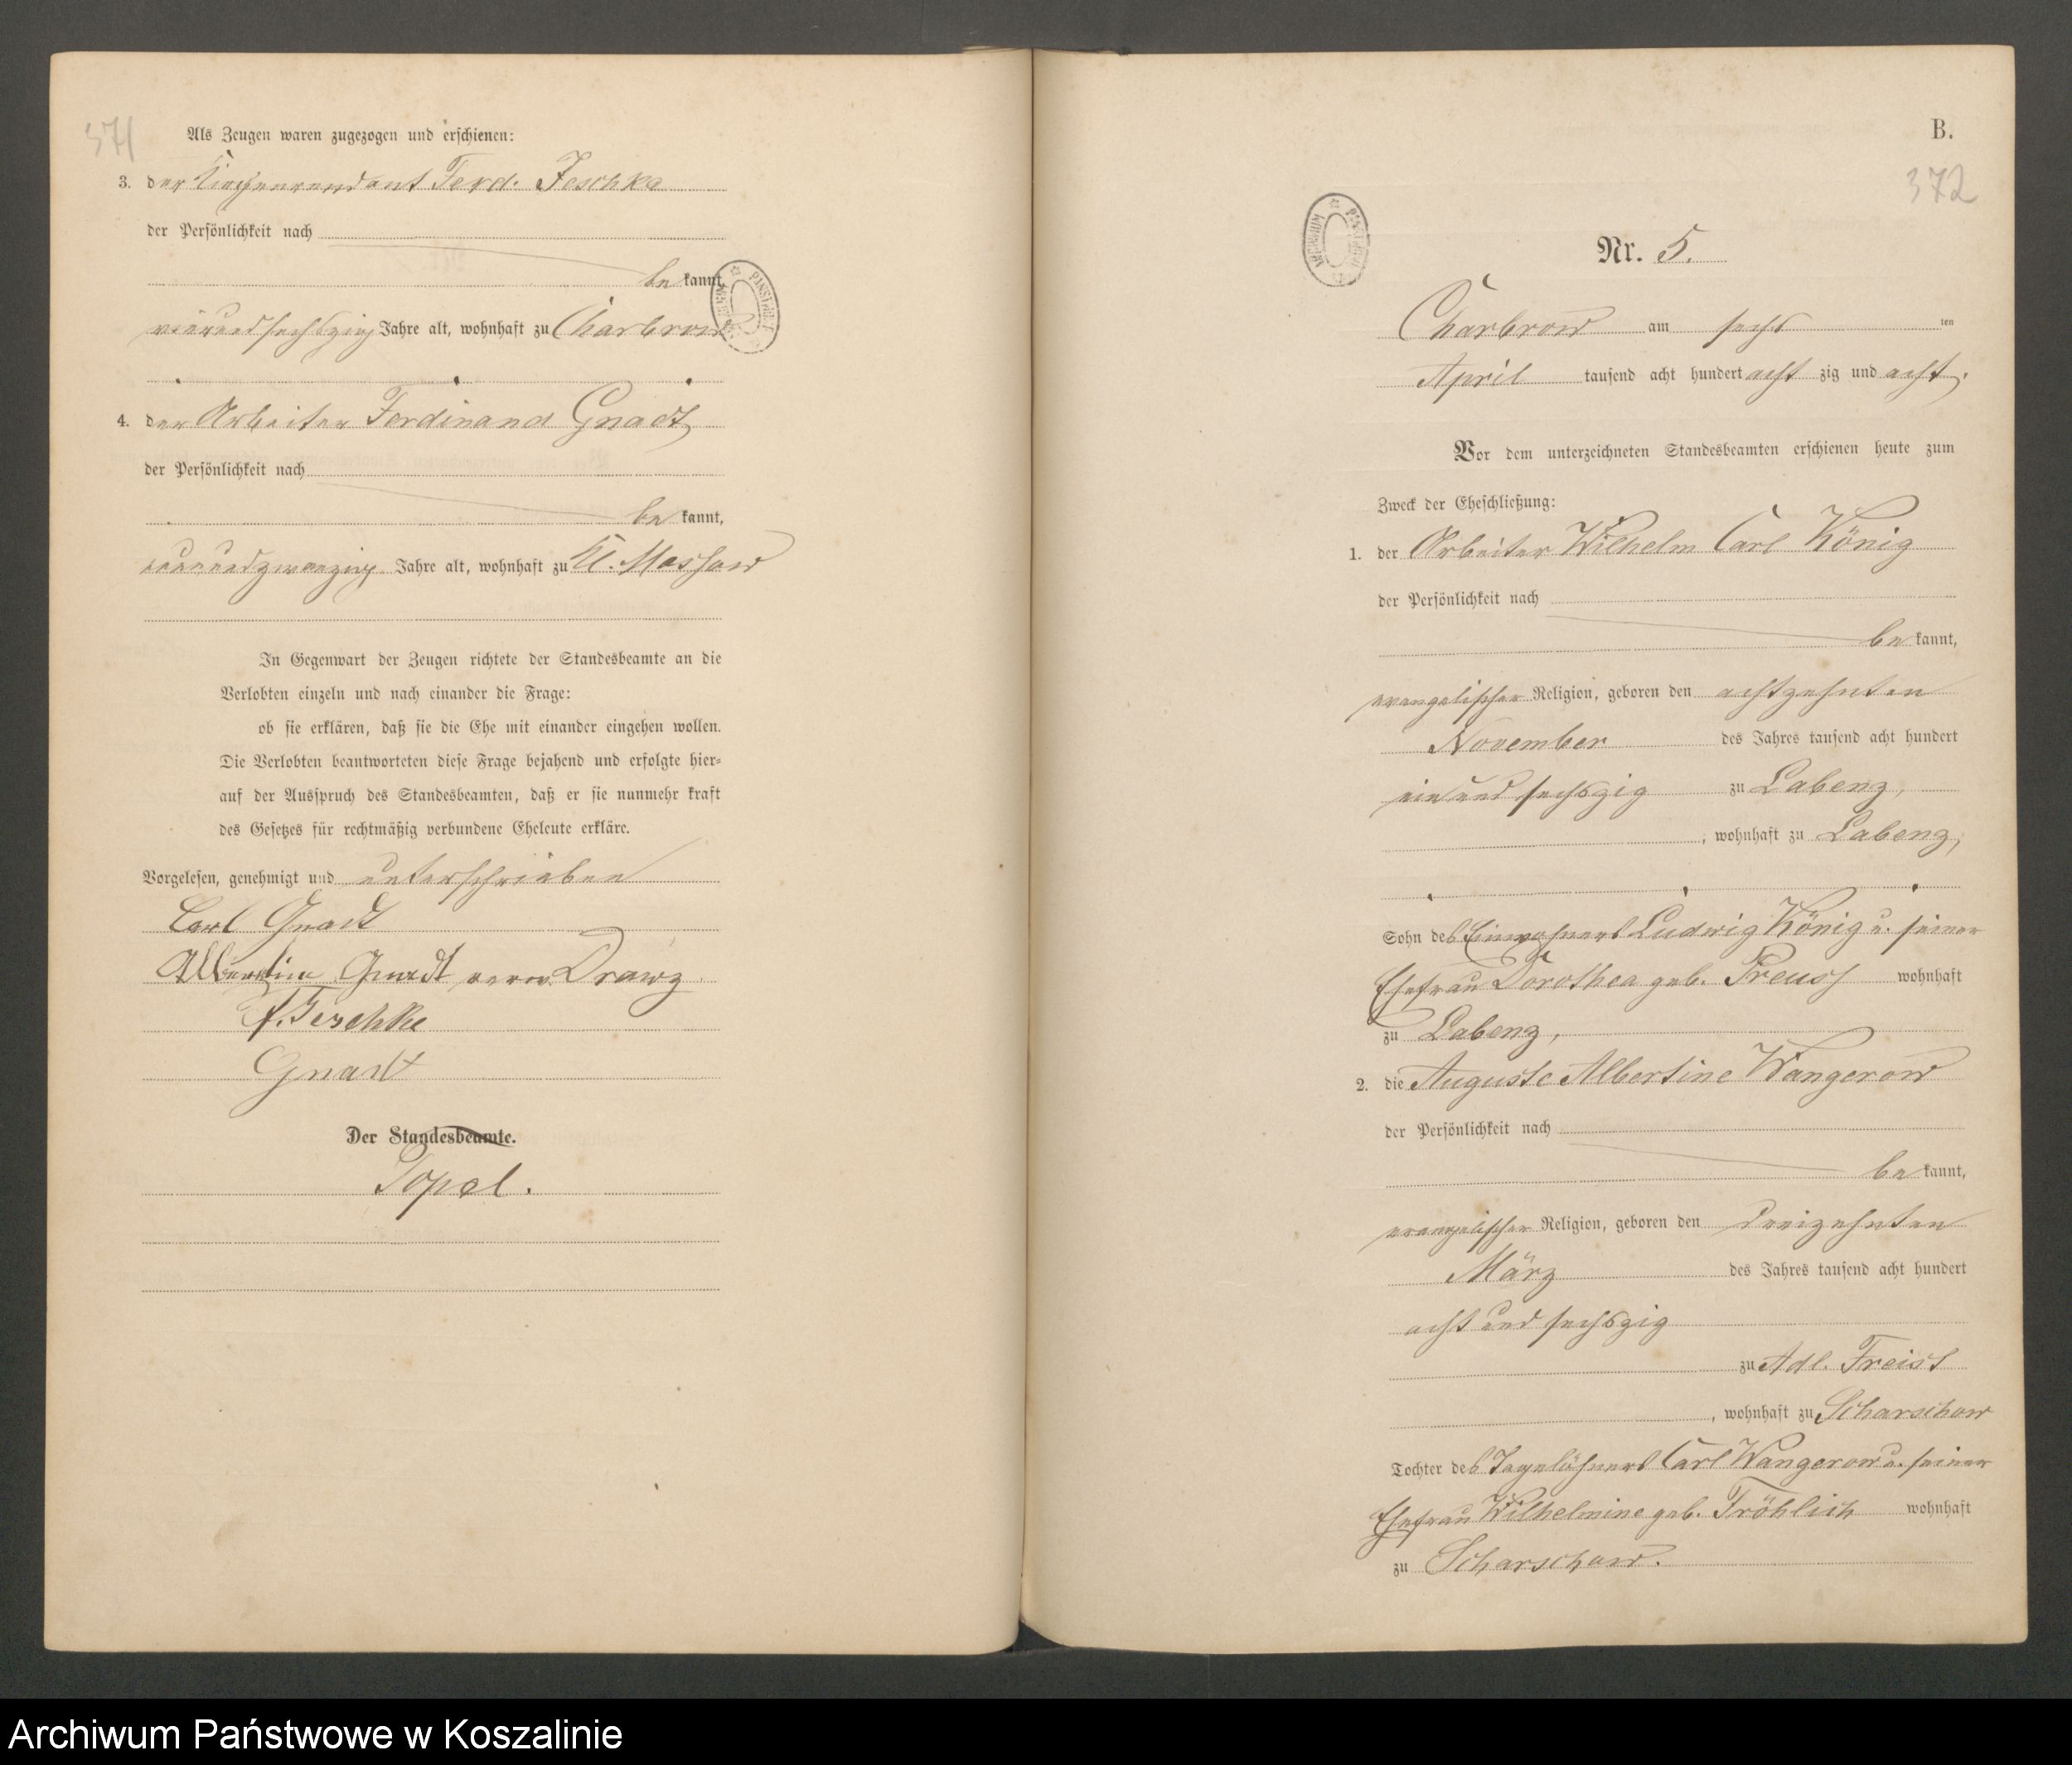 371
Als Zeugen waren zugezogen und erschienen:
3. der Kirchenrendant Ferd. Jeschke
der Persönlichkeit nach
be kannt,
vierundsechszig Jahre alt, wohnhaft zu Charbrow
4. der Arbeiter Ferdinand Gnadt,
der Persönlichkeit nach
be kannt,
neunundzwanzig Jahre alt, wohnhaft zu Kl. Massow
In Gegenwart der Zeugen richtete der Standesbeamte an die
Verlobten einzeln und nach einander die Frage:
ob sie erklären, daß sie die Ehe mit einander eingehen wollen.
Die Verlobten beantworteten diese Frage bejahend und erfolgte hier-
auf der Ausspruch des Standesbeamten, daß er sie nunmehr kraft
des Gesetzes für rechtmäßig verbundene Eheleute erkläre.
Vorgelesen, genehmigt und unterschrieben
Carl Gnadt
Albertine Gnadt verw. Drawz
F. Jeschke
Gnadt
Der Standesbeamte.
Topel.
B.
372
Nr. 5.
Charbrow am sechs ten
April tausend acht hundert acht zig und acht.
Vor dem unterzeichneten Standesbeamten erschienen heute zum
Zweck der Eheschließung:
1. der Arbeiter Wilhelm Carl König
der Persönlichkeit nach
be kannt,
evangelischer Religion, geboren den achtzehnten
November des Jahres tausend acht hundert
ein und sechszig zu Labenz,
, wohnhaft zu Labenz,
Sohn des Einwohners Ludwig König u. seiner
Ehefrau Dorothea geb. Preuss wohnhaft
zu Labenz,
2. die Auguste Albertine Wangerow
der Persönlichkeit nach
be kannt,
evangelischer Religion, geboren den dreizehnten
März des Jahres tausend acht hundert
acht und sechszig
zu Adl. Freist
, wohnhaft zu Scharschow
Tochter des Tagelöhners Carl Wangerow u. seiner
Ehefrau Wilhelmine geb. Fröhlich wohnhaft
zu Scharschow.
Archiwum Państwowe w Koszalinie